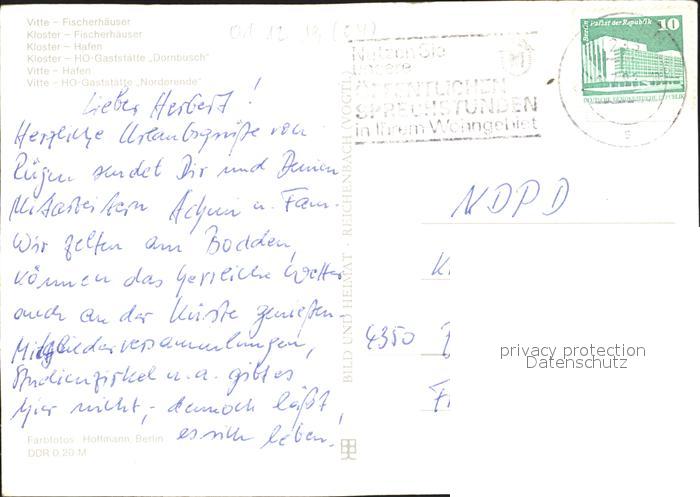 Vitte – Fischerhäuser
Kloster – Fischerhäuser
Kloster – Hafen
Kloster – HO-Gaststätte „Dornbusch"
Vitte – Hafen
Vitte – HO-Gaststätte „Norderende"
Lieber Herbert!
Herzliche Urlaubsgrüße von
Rügen sendet Dir und Deinen
Mitarbeitern Achim u. Fam.
Wir zelten am Bodden,
können das herrliche Wetter
auch an der Küste genießen.
Mitgliederversammlungen,
Studienzirkel u.a. gibt es
hier nicht, dennoch läßt
es sich leben!
Farbfotos Hoffmann, Berlin
DDR 0,20 M
BILD UND HEIMAT · REICHENBACH (VOGTL)
Nutzen Sie
unsere
ÖFFENTLICHEN
SPRECHSTUNDEN
in Ihrem Wohngebiet
Berlin Palast der Republik 10
DEUTSCHE DEMOKRATISCHE REPUBLIK
NDPD
4350
privacy protection
Datenschutz